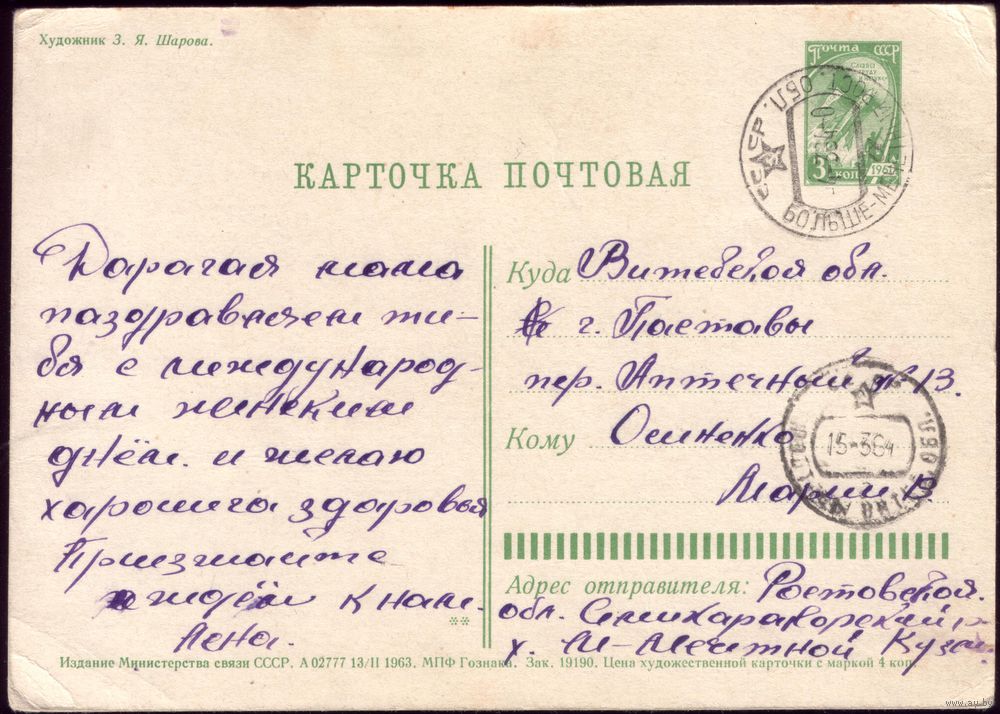 Художник З. Я. Шарова.
Почта СССР
СЛАВА
ТРУДУ
3 коп
1961
КАРТОЧКА ПОЧТОВАЯ
СССР
ОБЛ.
РОСТ.
БОЛЬШЕ-МЕЧЕТ
Дарагая мама
паздравляем ти-
бя с международ-
ным женским
днём. и желаю
харошига здоровья
Приезжайте
ждём к нам.
Лена.
**
Куда Витебской обл.
г. Паставы
пер. Аптечный № 13.
Кому Осиненко
Марии
15-364
Адрес отправителя: Ростовской.
обл. Семикаракорский р-
х. М-Мечтной Кузн
Издание Министерства связи СССР. А 02777 13/II 1963. МПФ Гознака. Зак. 19190. Цена художественной карточки с маркой 4 коп.
www.ay.by